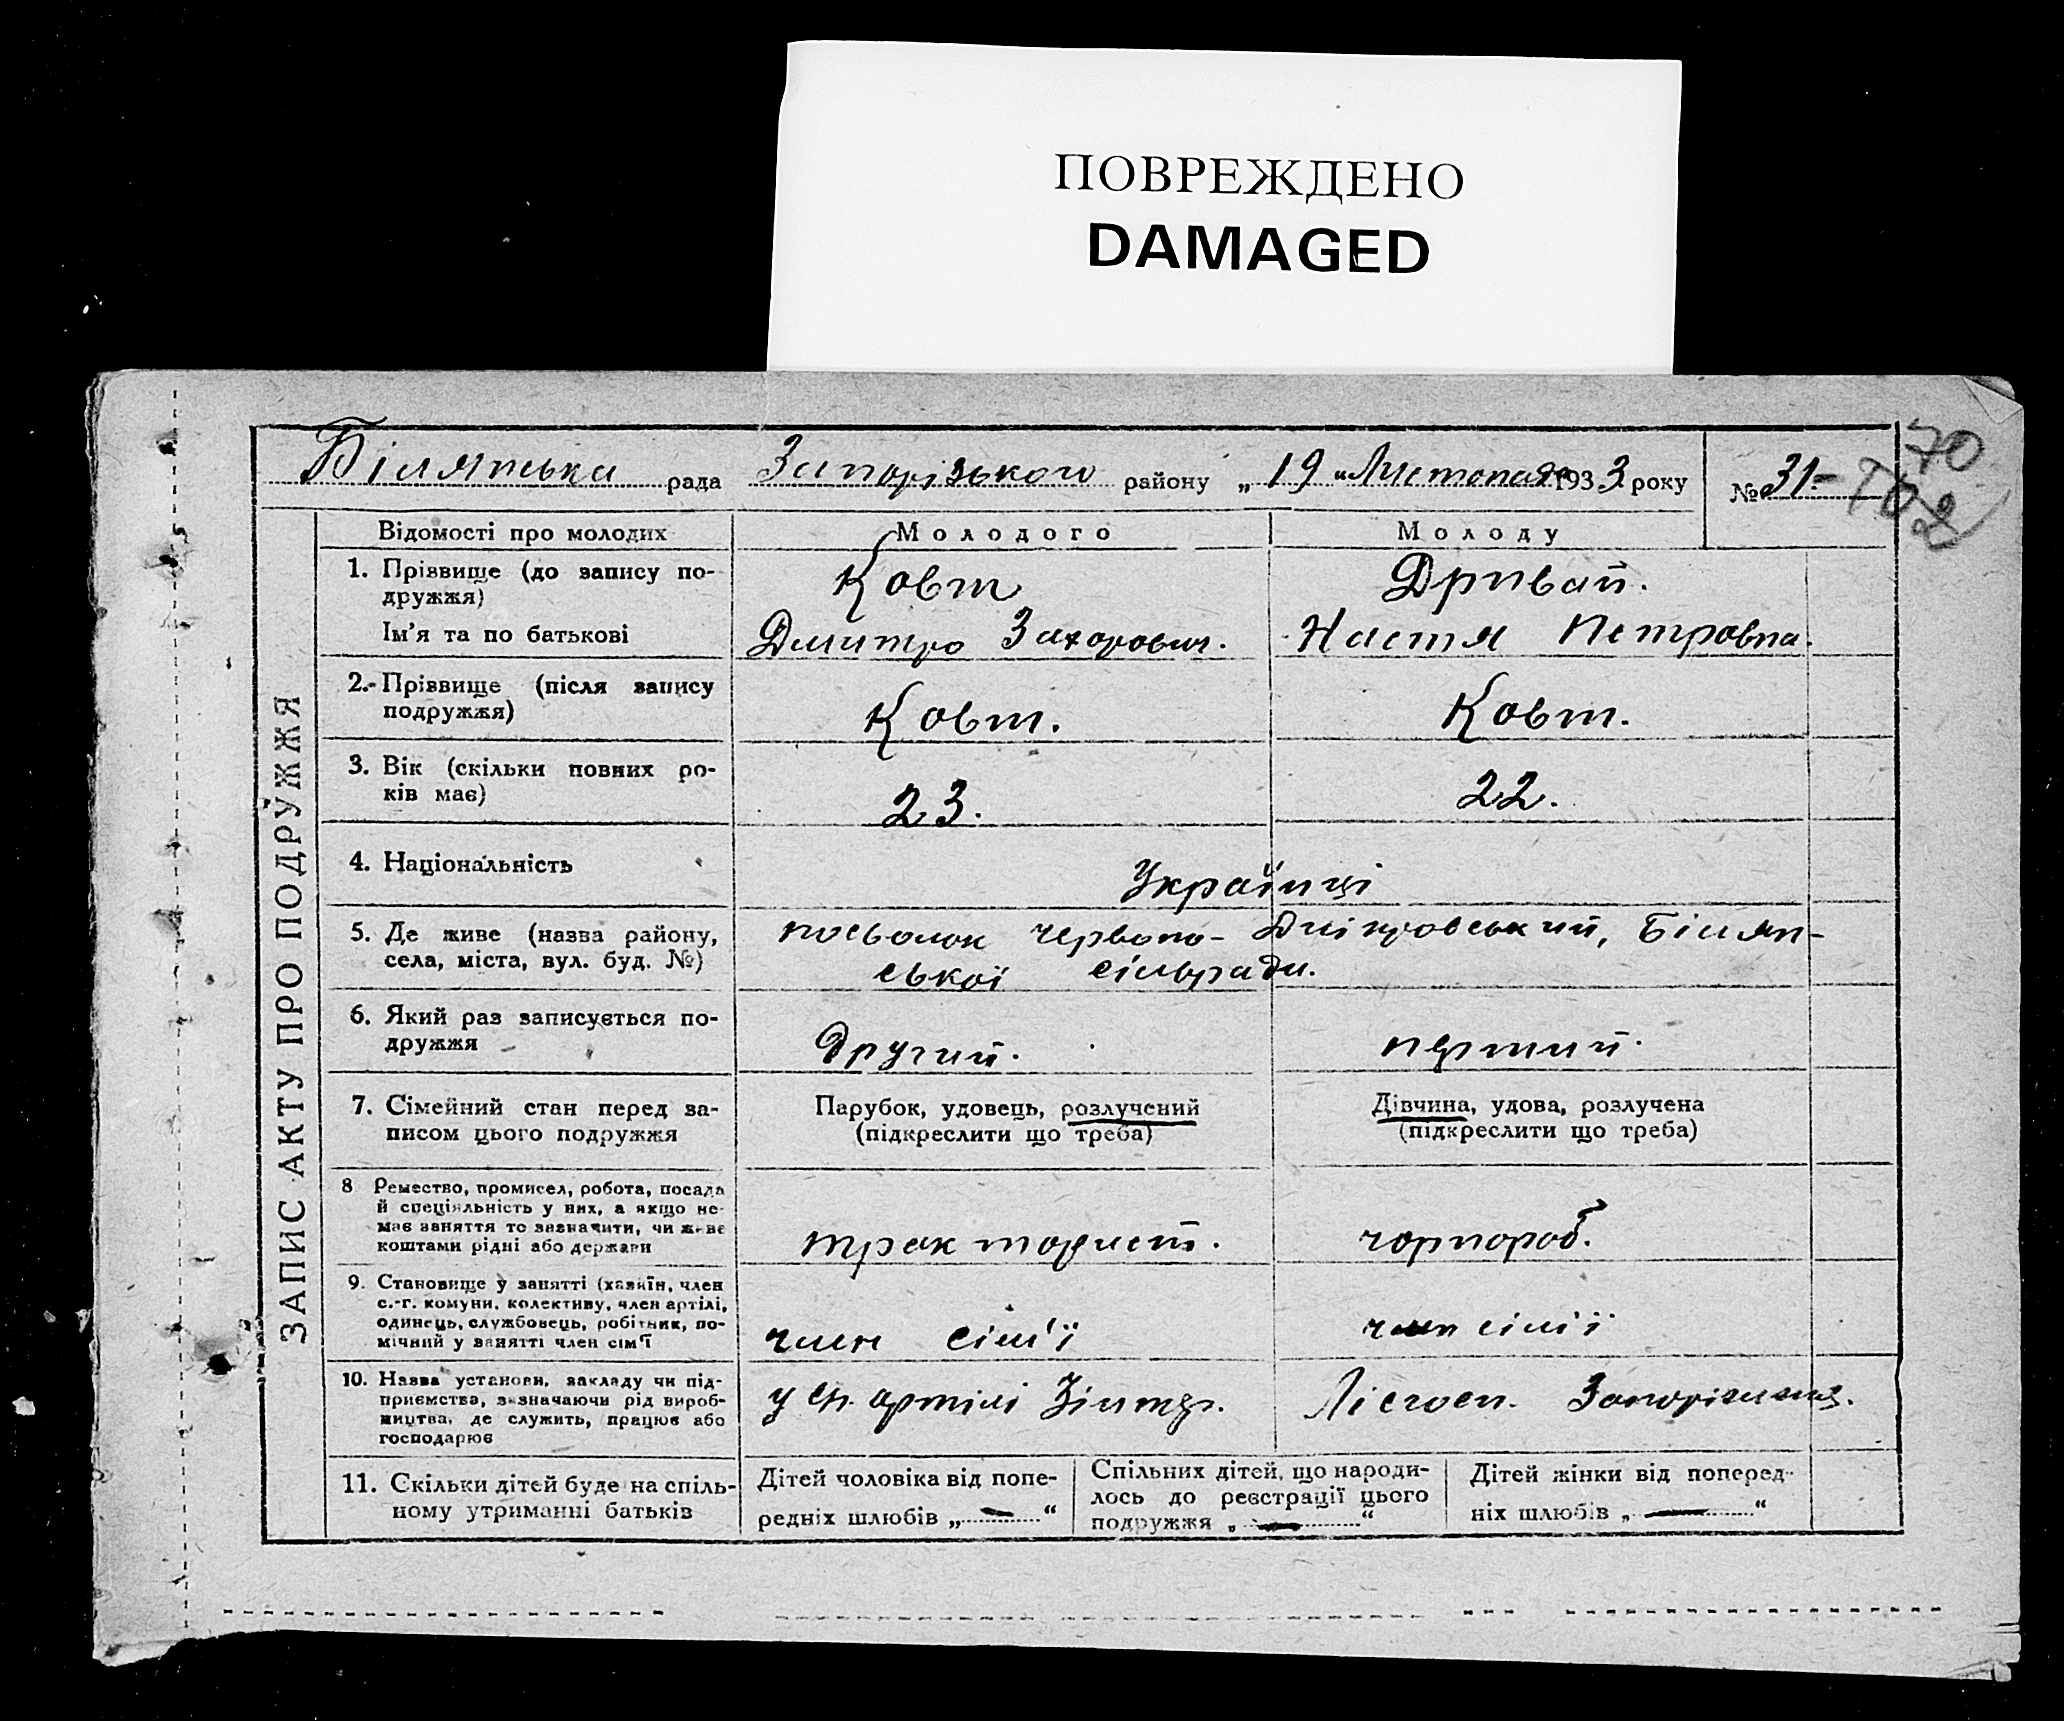 ПОВРЕЖДЕНО
DAMAGED
Білянська рада Запорізького району „19“ Листопада 1933 року № 31-
70
Відомості про молодих Молодого Молоду
ЗАПИС АКТУ ПРО ПОДРУЖЖЯ
1. Прізвище (до запису по-
дружжя)
Ковт Дривай.
Ім'я та по батькові Дмитро Захорович. Настя Петровна.
2. Прізвище (після запису
подружжя)
Ковт. Ковт.
3. Вік (скільки повних ро-
ків має)
23. 22.
4. Національність Українці
5. Де живе (назва району,
села, міста, вул. буд. №)
посьолок Червоно-Дніпровський, Білян-
ської сільради.
6. Який раз записується по-
дружжя
Другий. перший.
7. Сімейний стан перед за-
писом цього подружжя
Парубок, удовець, розлучений
(підкреслити що треба)
Дівчина, удова, розлучена
(підкреслити що треба)
8 Ремество, промисел, робота, посада
й спеціяльність у них, а якщо не-
має заняття то зазначити, чи живе
коштами рідні або держави
тракторист. чорнороб.
9. Становище у занятті (хазяїн, член
с.-г. комуни, колективу, член артілі,
одинець, службовець, робітник, по-
мічний у занятті член сім'ї
член сім'ї член сімії
10. Назва установи, закладу чи під-
приємства, зазначаючи рід вироб-
ництва, де служить, працює або
господарює
у сг. артілі Лісгосп.
11. Скільки дітей буде на спіль-
ному утриманні батьків
Дітей чоловіка від попе-
редніх шлюбів „—“
Спільних дітей, що народи-
лось до реєстрації цього
подружжя „—“
Дітей жінки від поперед-
ніх шлюбів „—“